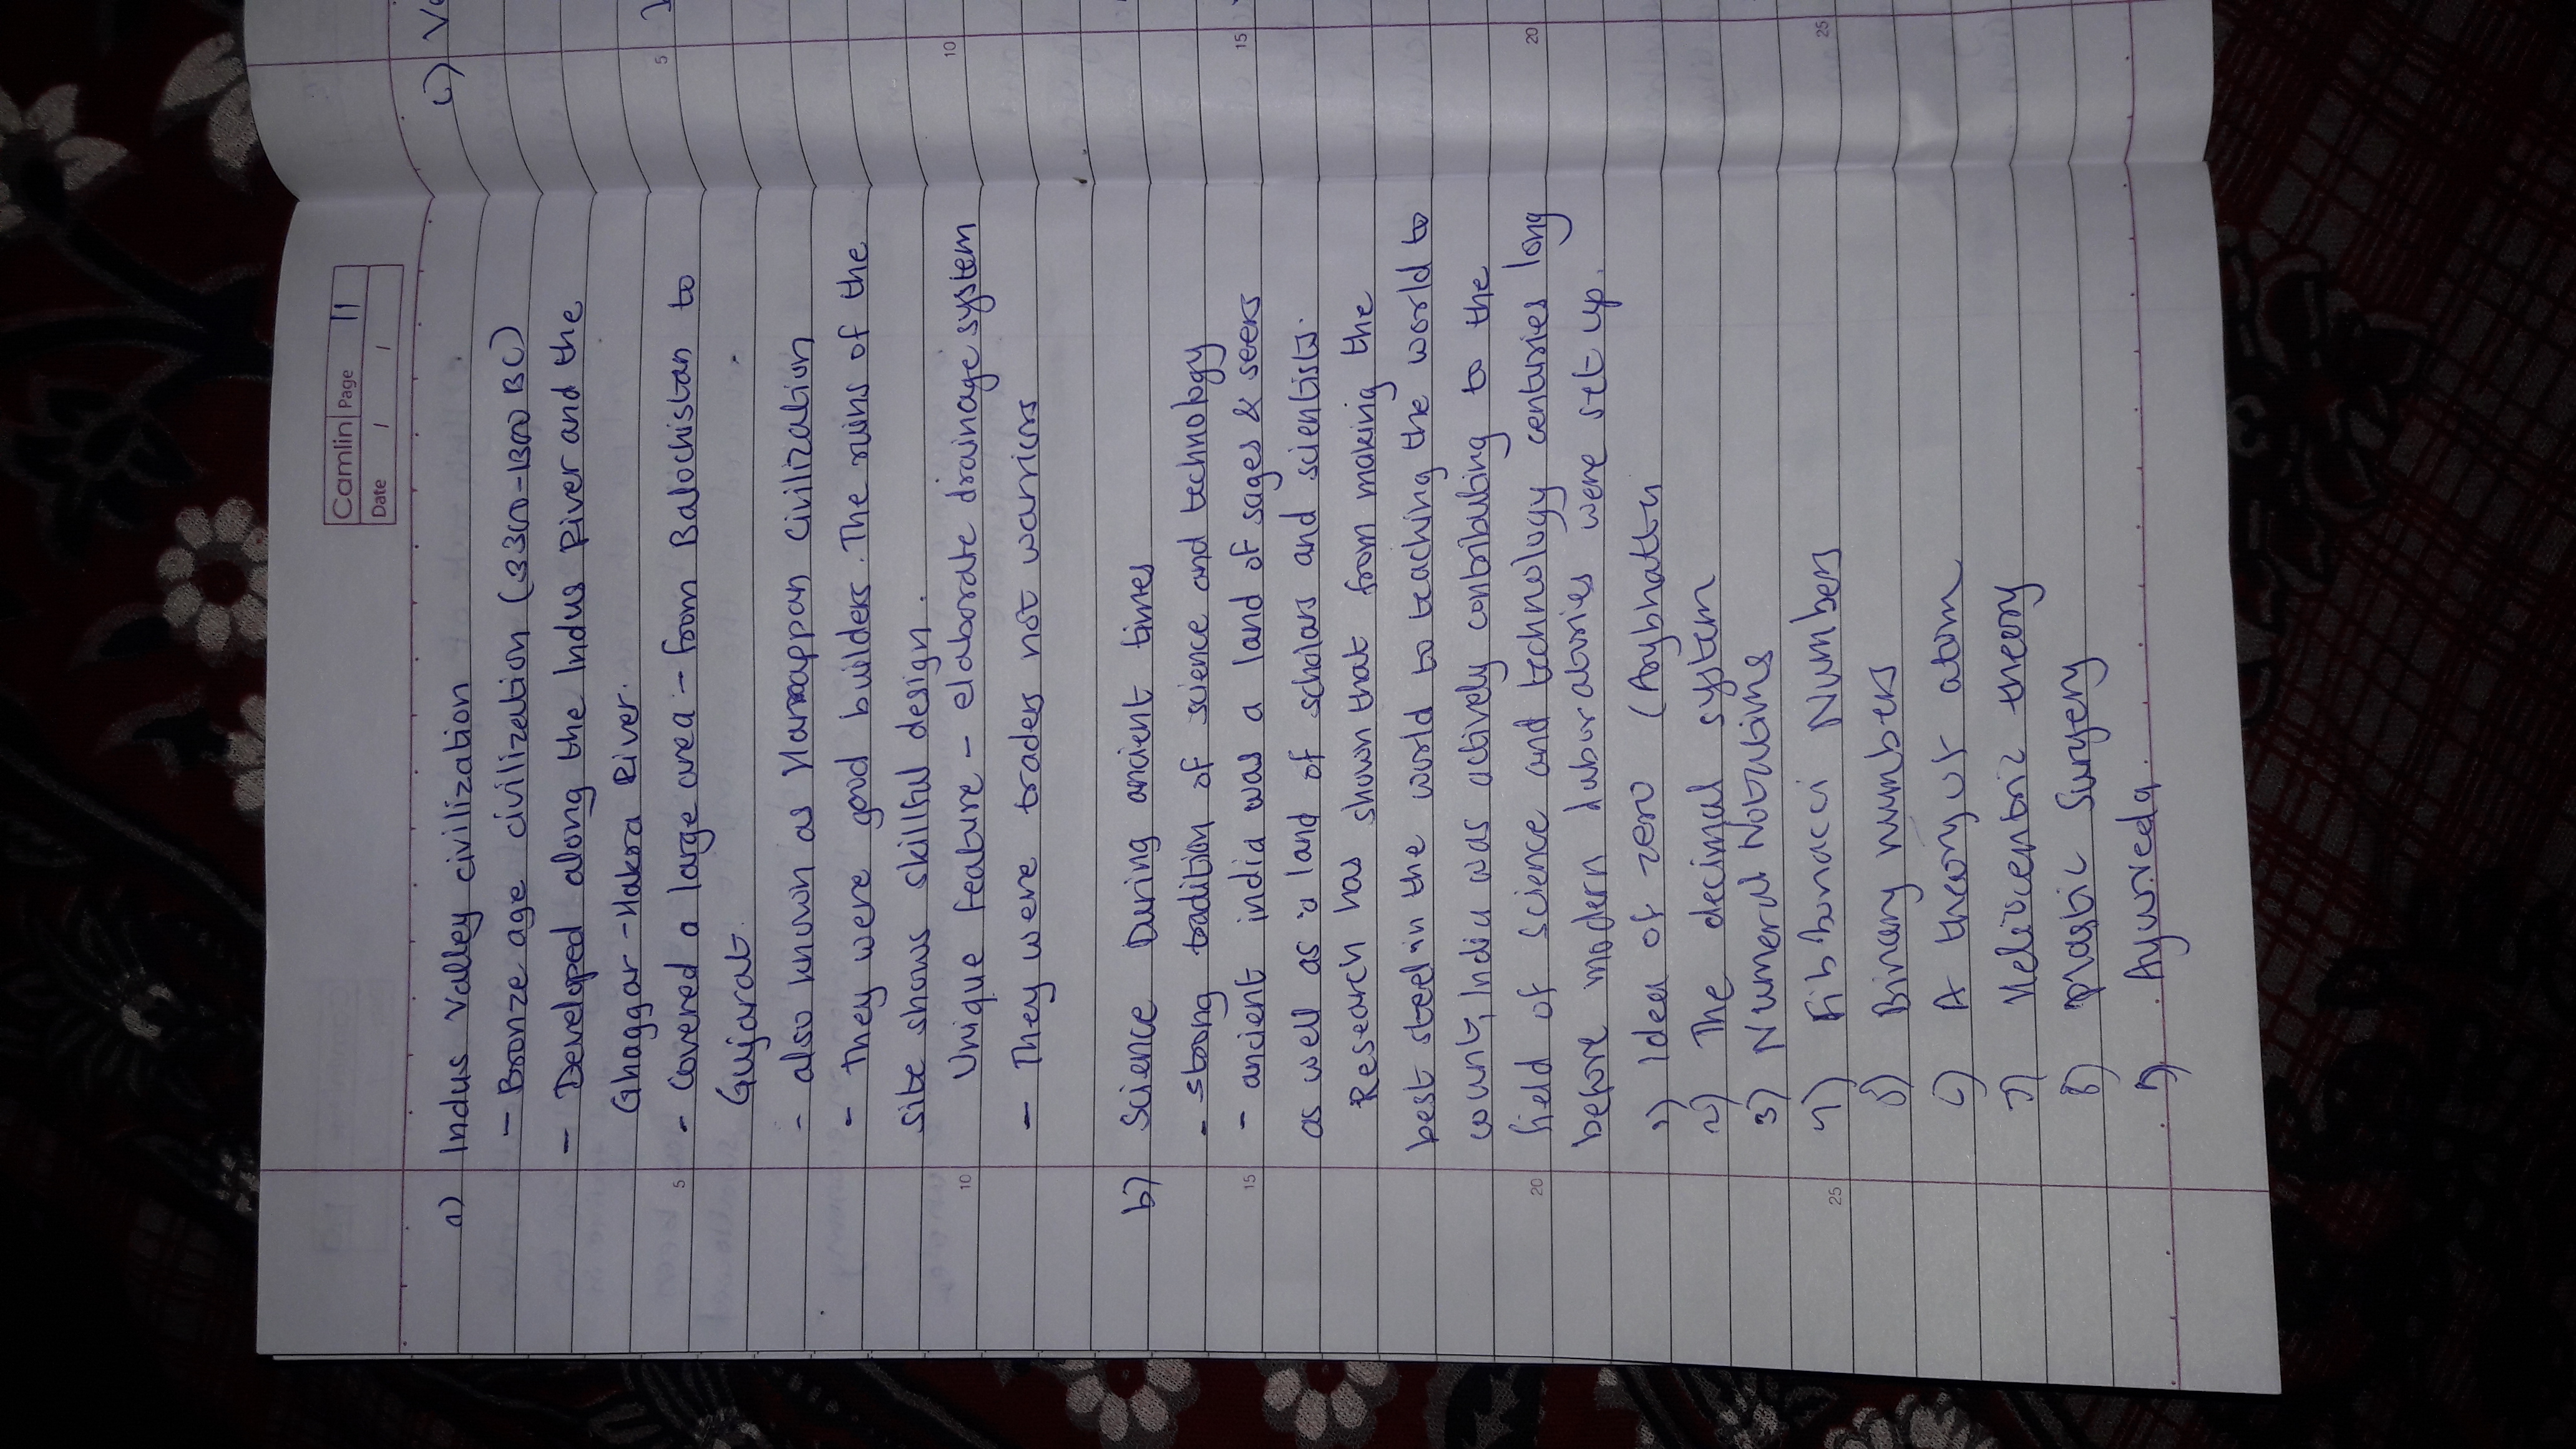 Camlin Page 11
Date / /
a) Indus Valley civilization
- Bronze age civilization (3300-1300 BC)
- Developed along the Indus River and the
Ghaggar-Hakra River.
5 - Covered a large area - from Balochistan to
Gujarat.
- also known as Harrappan Civilization
- They were good builders. The ruins of the
site shows skillful design.
10 Unique feature - elaborate drainage system
- They were traders not warriors
b) Science During ancient times
- strong tradition of science and technology
15 - ancient india was a land of sages & seers
as well as a land of scholars and scientists.
Research has shown that from making the
best steel in the world to teaching the world to
count, India was actively contributing to the
20 field of science and technology centuries long
before modern laboratories were set up.
1) Idea of zero (Arybhatta
2) The decimal system
3) Numeral Notations
25 4) Fibbonacci Numbers
5) Binary numbers
6) A theory of atom
7) Heliocentric theory
8) Plastic Surgery
9) Ayurveda.
c)
5
10
15
20
25